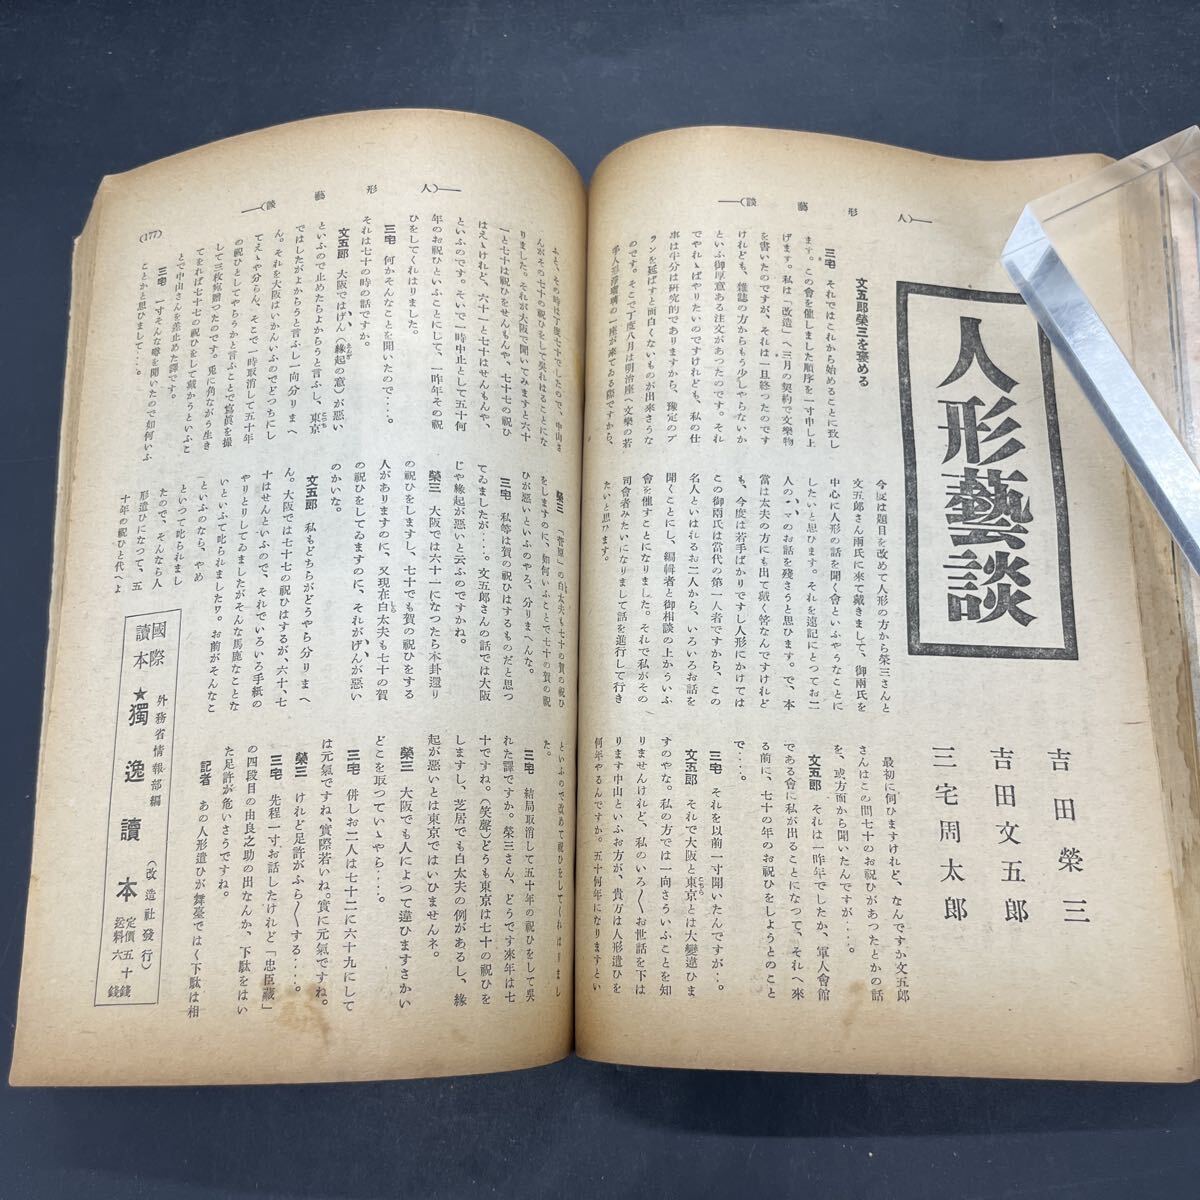 ―(人形藝談)―
人形藝談
吉田榮三
吉田文五郎
三宅周太郎
文五郎榮三を褒める
三宅 それではこれから始めることに致し
ます。この會を催しました順序を一寸申し上
げます。私は「改造」へ三月の契約で文樂物
を書いたのですが、それは一旦終つたのです
けれども、雜誌の方からもう少しやらないか
といふ御厚意ある注文があつたのです。それ
でやれゝばやりたいのですけれども、私の仕
事は半分は研究的でありますから、豫定のプ
ランを延ばすと面白くないものが出來さうな
のです。そこで丁度八月は明治座へ文樂の若
手人形淨瑠璃の一座が來てゐる際ですから、
今度は題目を改めて人形の方から榮三さんと
文五郎さん兩氏に來て戴きまして、御兩氏を
中心に人形の話を聞く會といふやうなことに
したいと思ひます。それを速記にとつてお二
人のナマのお話を殘さうと思ひます。で、本
當は太夫の方にも出て戴く筈なんですけれど
も、今度は若手ばかりですし人形にかけては
この御兩氏は當代の第一人者ですから、この
名人といはれるお二人から、いろいろお話を
聞くことにし、編輯者と御相談の上かういふ
會を催すことになりました。それで私がその
司會者みたいになりまして話を進行して行き
たいと思ひます。
最初に伺ひますけれど、なんですか文五郎
さんはこの間七十のお祝ひがあつたとかの話
を、或方面から聞いたんですが‥‥。
文五郎 それは一昨年でしたか、軍人會館
である會に私が出ることになつて、それへ來
る前に、七十の年のお祝ひをしようとのこと
で‥‥。
三宅 それを以前一寸開いたんですが‥。
文五郎 それで大阪と東京とは大變違ひま
すのやな。私の方では一向さういふことを知
りませんけれど、私のいろ〱お世話を下は
ります中山といふお方が、貴方は人形遣ひを
何年やるんですか。五十何年になりますとい
―(人形藝談)―
ふと、その時は丁度七十でしたので、中山さ
んがその七十の祝ひをして吳れはることにな
りました。それが大阪で聞いてみますと六十
一と七十は祝ひをせんもんや、七十七の祝ひ
はえゝけれど、六十一と七十はせんもんや、
といふのです。そいで一時中止として五十何
年のお祝ひといふことにして、一昨年その祝
ひをしてくれはりました。
三宅 何かそんなことを聞いたので‥‥。
それは七十の時の話ですか。
文五郎 大阪ではげん(緣起の意)が惡い
といふので止めたらよからうと言ふし、東京
ではしたがよからうと言ふし一向分りまへ
ん。それを大阪はいかんいふのでどつちにし
てえゝや分らん、そこで一時取消して五十年
の祝ひとしてやらうかと言ふことで寫眞を撮
して三枚宛贈つたのです。兎に角ながう生き
てをれば七十七の祝ひをして戴かうといふこ
とで中山さんを差止めた譯です。
三宅 一寸そんな噂を聞いたので如何いふ
ことかと思ひまして‥‥。
榮三 「菅原」の白太夫も七十の賀の祝ひ
をしますのに、如何いふことで七十の賀の祝
ひが惡いといふのやろ、分りまへんな。
三宅 私等は賀の祝ひはするものだと思つ
てゐましたが‥‥。文五郎さんの話では大阪
ぢや緣起が惡いと云ふのですかね。
榮三 大阪では六十一になつたら本卦還り
の祝ひをしますし、七十でも賀の祝ひをする
人がありますのに、又現在白太夫も七十の賀
の祝ひをしてゐますのに、それがげんが惡い
のかいな。
文五郎 私もどちらがどうやら分りまへ
ん。大阪では七十七の祝ひはするが、六十、七
十はせんといふので、それでいろいろ手紙の
やりとりしてゐましたがそんな馬鹿なことな
いといふて叱られましたワ。お前がそんなこ
といふのなら、やめ
といつて叱られまし
たので、そんなら人
形遣ひになつて、五
十年の祝ひと代へよ
といふので改めて祝ひをしてくれはりまし
た。
三宅 結局取消して五十年の祝ひをして吳
れた譯ですか。榮三さん、どうです來年は七
十ですね。(笑聲)どうも東京は七十の祝ひを
しますし、芝居でも白太夫の例があるし、緣
起が惡いとは東京ではいひませんネ。
榮三 大阪でも人によつて違ひますさかい
どこを取つていゝやら‥‥。
三宅 併しお二人は七十二に六十九にして
は元氣ですね、實際若いね。實に元氣ですね。
榮三 けれど足許がふら〱する‥‥。
三宅 先程一寸お話したけれど「忠臣藏」
の四段目の由良之助の出なんか、下駄をはい
た足許が危いさうですね。
記者 あの人形遣ひが舞臺ではく下駄は相
國際讀本★獨逸讀本
外務省情報部編
(改造社發行)
定價五十錢
送料六錢
(177)